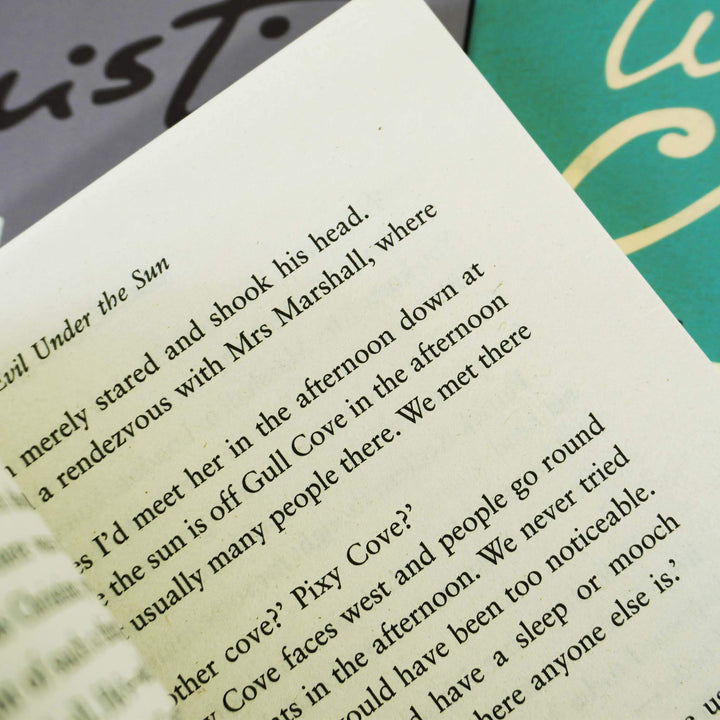 uist
Evil Under the Sun
merely stared and shook his head.
a rendezvous with Mrs Marshall, where
I'd meet her in the afternoon down at
the sun is off Gull Cove in the afternoon
usually many people there. We met there
other cove?' Pixy Cove?'
Cove faces west and people go round
in the afternoon. We never tried
would have been too noticeable.
have a sleep or mooch
where anyone else is.'